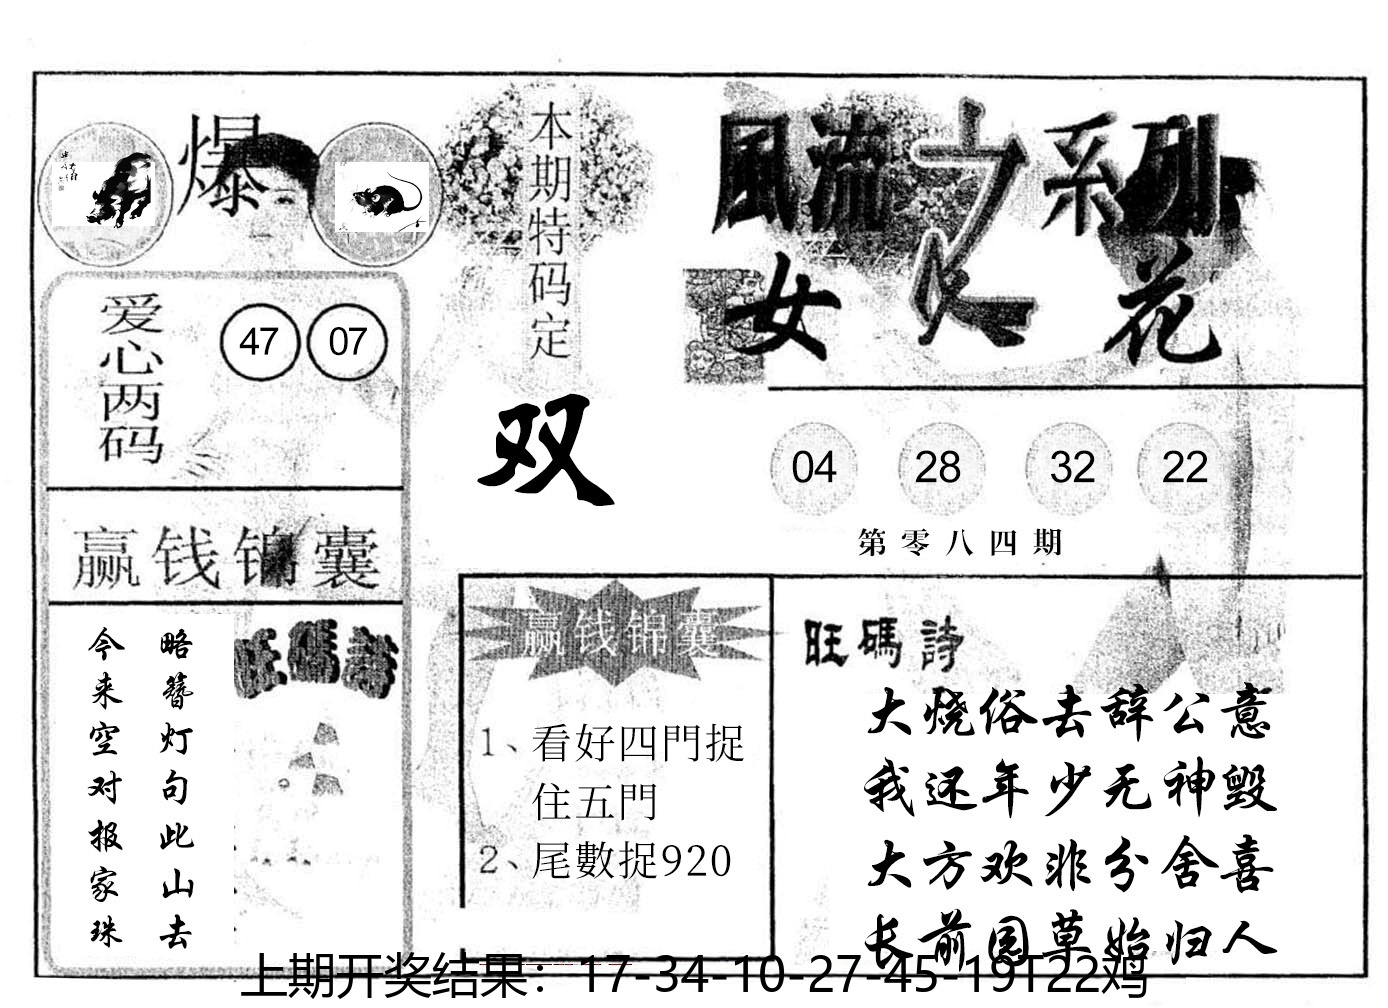 爆
本期特码定
双
風流之系列
女人花
爱心两码
47 07
04 28 32 22
第零八四期
赢钱锦囊
略簪灯句此山去
今来空对报家珠
旺碼詩
赢钱锦囊
1、看好四門捉
住五門
2、尾數捉920
旺碼詩
大烧俗去辞公意
我还年少无神毁
大方欢非分舍喜
长前园草始归人
上期开奖结果：17-34-10-27-45-19T22鸡